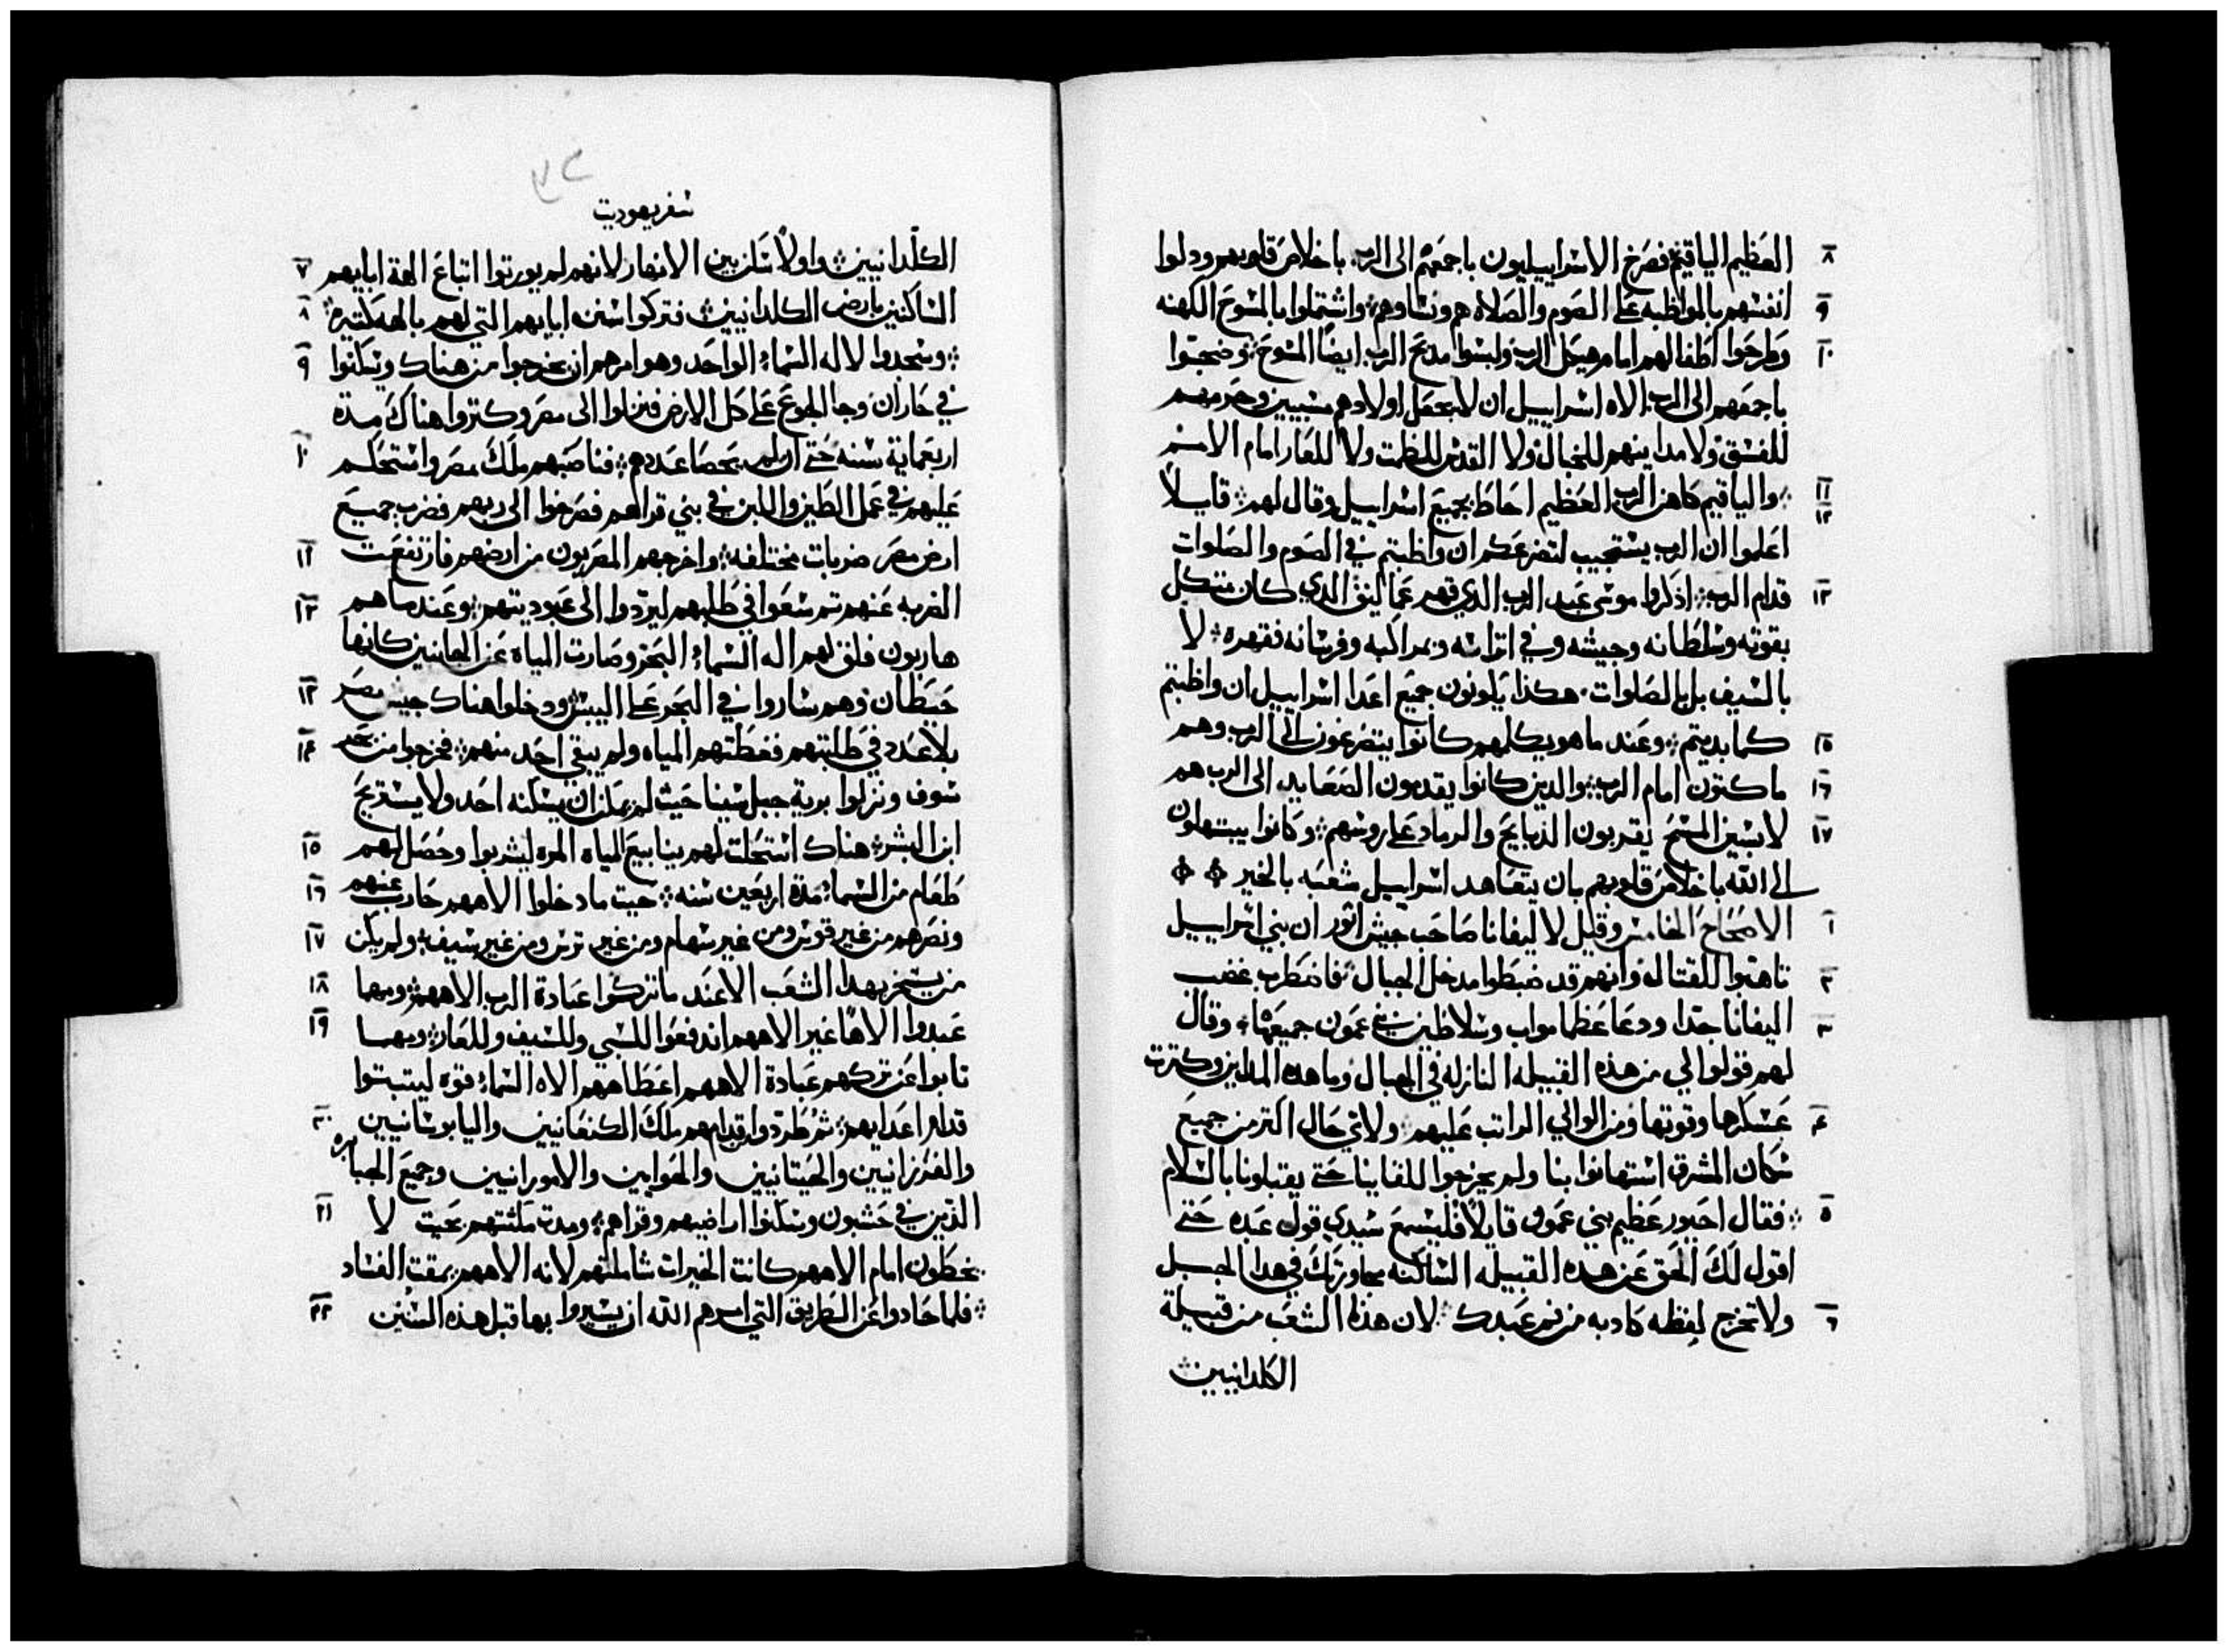 ٨ العظيم الياقيم فصرخ الاسراييليون باجمعهم الى الرب باخلاص قلوبهم ودلوا
٩ انفسهم بالمواظبه على الصوم والصلاه هم ونساوهم واشتملوا بالمسوح الكهنه
١٠ وطرحوا اطفالهم امام هيكل الرب ولبسوا مدبح الرب ايضًا المسوح وضجوا
باجمعهم الى الرب الاه اسراييل ان لا يجعل اولادهم مسبيين وحريمهم
للفسق ولا مداينهم للخبال ولا القدس للطمت ولا للعار امام الامم
١١ ١٢ والياقيم كاهن الرب العظيم احاط بجميع اسراييل وقال لهم قايلاً
اعلموا ان الرب يستجيب لتضرعكم ان واظبتم في الصوم والصلوات
١٣ قدام الرب اذكروا موسى عبد الرب الدي قهر عماليق الدي كان متكل
بقوته وسلطانه وجيشه وفي اتراسه وبمراكبه وفرسانه فقهره لا
بالسيف بل بالصلوات هكذا يكونون جميع اعدا اسراييل ان واظبتم
١٥ كما بديتم وعند ما هو يكلمهم كانوا يتضرعون الى الرب وهم
١٦ ماكتون امام الرب والدين كانوا يقدمون الصعايد الى الرب هم
١٧ لابسين المسح يقربون الدبايح والرماد على روسهم وكانوا يبتهلون
الى الله باخلاص قلوبهم بان يتعاهد اسراييل شعبه بالخير
١ الاصحاح الخامس وقيل لاليفانا صاحب جيش اثور ان بني اسراييل
٢ تاهبوا للقتال وانهم قد ضبطوا مدخل الجبال فاضطرب غضب
٣ اليفانا جدا ودعا عظما مواب وسلاطين بني عمون جميعها وقال
لهم قولوا لي من هذه القبيله النازله في الجبال وما هده المداين وكترت
٤ عسكرها وقوتها ومن الوالي الراتب عليهم ولاي حال اكتر من جميع
سكان المشرق استهانوا بنا ولم يخرجوا للقاينا حتى يقبلونا بالسلام
٥ فقال احيور عظيم بني عمون قايلاً فليسمع سيدي قول عبده حتى
اقول لك الحق عن هده القبيله الساكنه مجاورتك في هدا الجبل
٦ ولا تخرج لفظه كادبه من فم عبدك لان هذا الشعب من قبيلة
الكلدانيين
سفر يهوديت
٧ الكلدانيين واولاً ساكنين الانهار لانهم لم يوروا اتباع الهة ابايهم
٨ الساكنين بارض الكلدانيين فتركوا سنن ابايهم التي لهم بالهه كتيره
٩ وسجدوا لاله السماء الواحد وهو امرهم ان يخرجوا من هناك ويسكنوا
في حاران وجا الجوع على كل الارض فنزلوا الى مصر وكتروا هناك مدة
١٠ اربعماية سنه حتى ان لم يحصا عددهم فناصبهم ملك مصر واستحكم
عليهم في عمل الطين واللبن في بني قراهم فصرخوا الى ربهم فضرب جميع
١١ ارض مصر ضربات مختلفه واخرجهم المصريون من ارضهم فارتفعت
١٢ الضربه عنهم تم سعوا في طلبهم ليردوا الى عبوديتهم وعند ما هم
هاربون فلق لهم اله السماء البحر وصارت المياه عن الجانبين كانها
١٣ حيطان وهم ساروا في البحر على اليبس ودخلوا هناك جيش مصر
١٤ بلا عدد في طلبتهم فغطتهم المياه ولم يبقي احد منهم فخرجوا من بحر
سوف ونزلوا برية جبل سينا حيث لم يمكن ان يسكنه احد ولا يستريح
١٥ ابن البشر هناك استحلت لهم ينابيع المياه المره ليشربوا وحصل لهم
١٦ طعام من السماء مدة اربعين سنه حيت ما دخلوا الاههم حارب عنهم
١٧ ونصرهم من غير قوس ومن غير سهام ومن غير ترس ومن غير سيف ولم يكن
١٨ من يسخر بهدا الشعب الا عند ما تركوا عبادة الرب الاههم ومهما
١٩ عبدوا الاهًا غير الاههم اندفعوا للسبي وللسيف وللعار ومهما
تابوا عن تركهم عبادة الاههم اعطاهم الاه السماء قوه ليتبتوا
٢٠ قدام اعدايهم ثم طردوا قدامهم ملك الكنعانيين واليابوسانيين
والفرزانيين والحيتانيين والحوايين والامورانيين وجميع الجبابره
٢١ الذين في حشبون وسكنوا اراضيهم وقراهم ومدت مكثتهم بحيت لا
يخطون امام الاههم كانت الخيرات شاملتهم لانه الاههم يمقت الفساد
٢٢ فلما حادوا عن الطريق التي امرهم الله ان يسيروا بها قبل هذه السنين